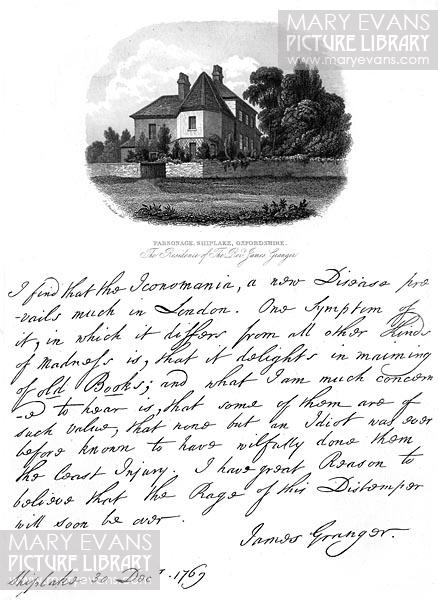 MARY EVANS
PICTURE LIBRARY
www.maryevans.com
PARSONAGE, SHIPLAKE, OXFORDSHIRE.
The Residence of The Revd. James Granger
I find that the Iconomania, a new Disease pre
-vails much in London. One Symptom of
it, in which it differs from all other Kinds
of Madness is, that it delights in maiming
of old Books; and what I am much concern
-ed to hear is, that some of them are of
such value, that none but an Idiot was ever
before known to have wilfully done them
the least Injury. I have great Reason to
believe that the Rage of this Distemper
will soon be over.
James Granger.
Shiplake 30 Decr. 1769
MARY EVANS
PICTURE LIBRARY
www.maryevans.com
MARY EVANS
PICTURE LIBRARY
www.maryevans.com